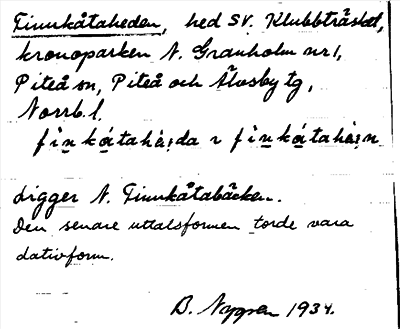 Finnkåtaheden, hed SV. Klubbträsket,
kronoparken N. Granholm nr 1,
Piteå sn, Piteå och Älvsby tg,
Norrb. l.
Ligger N. Finnkåtabäcken.
Den senare uttalsformen torde vara
dativform.
B. Nygren 1934.